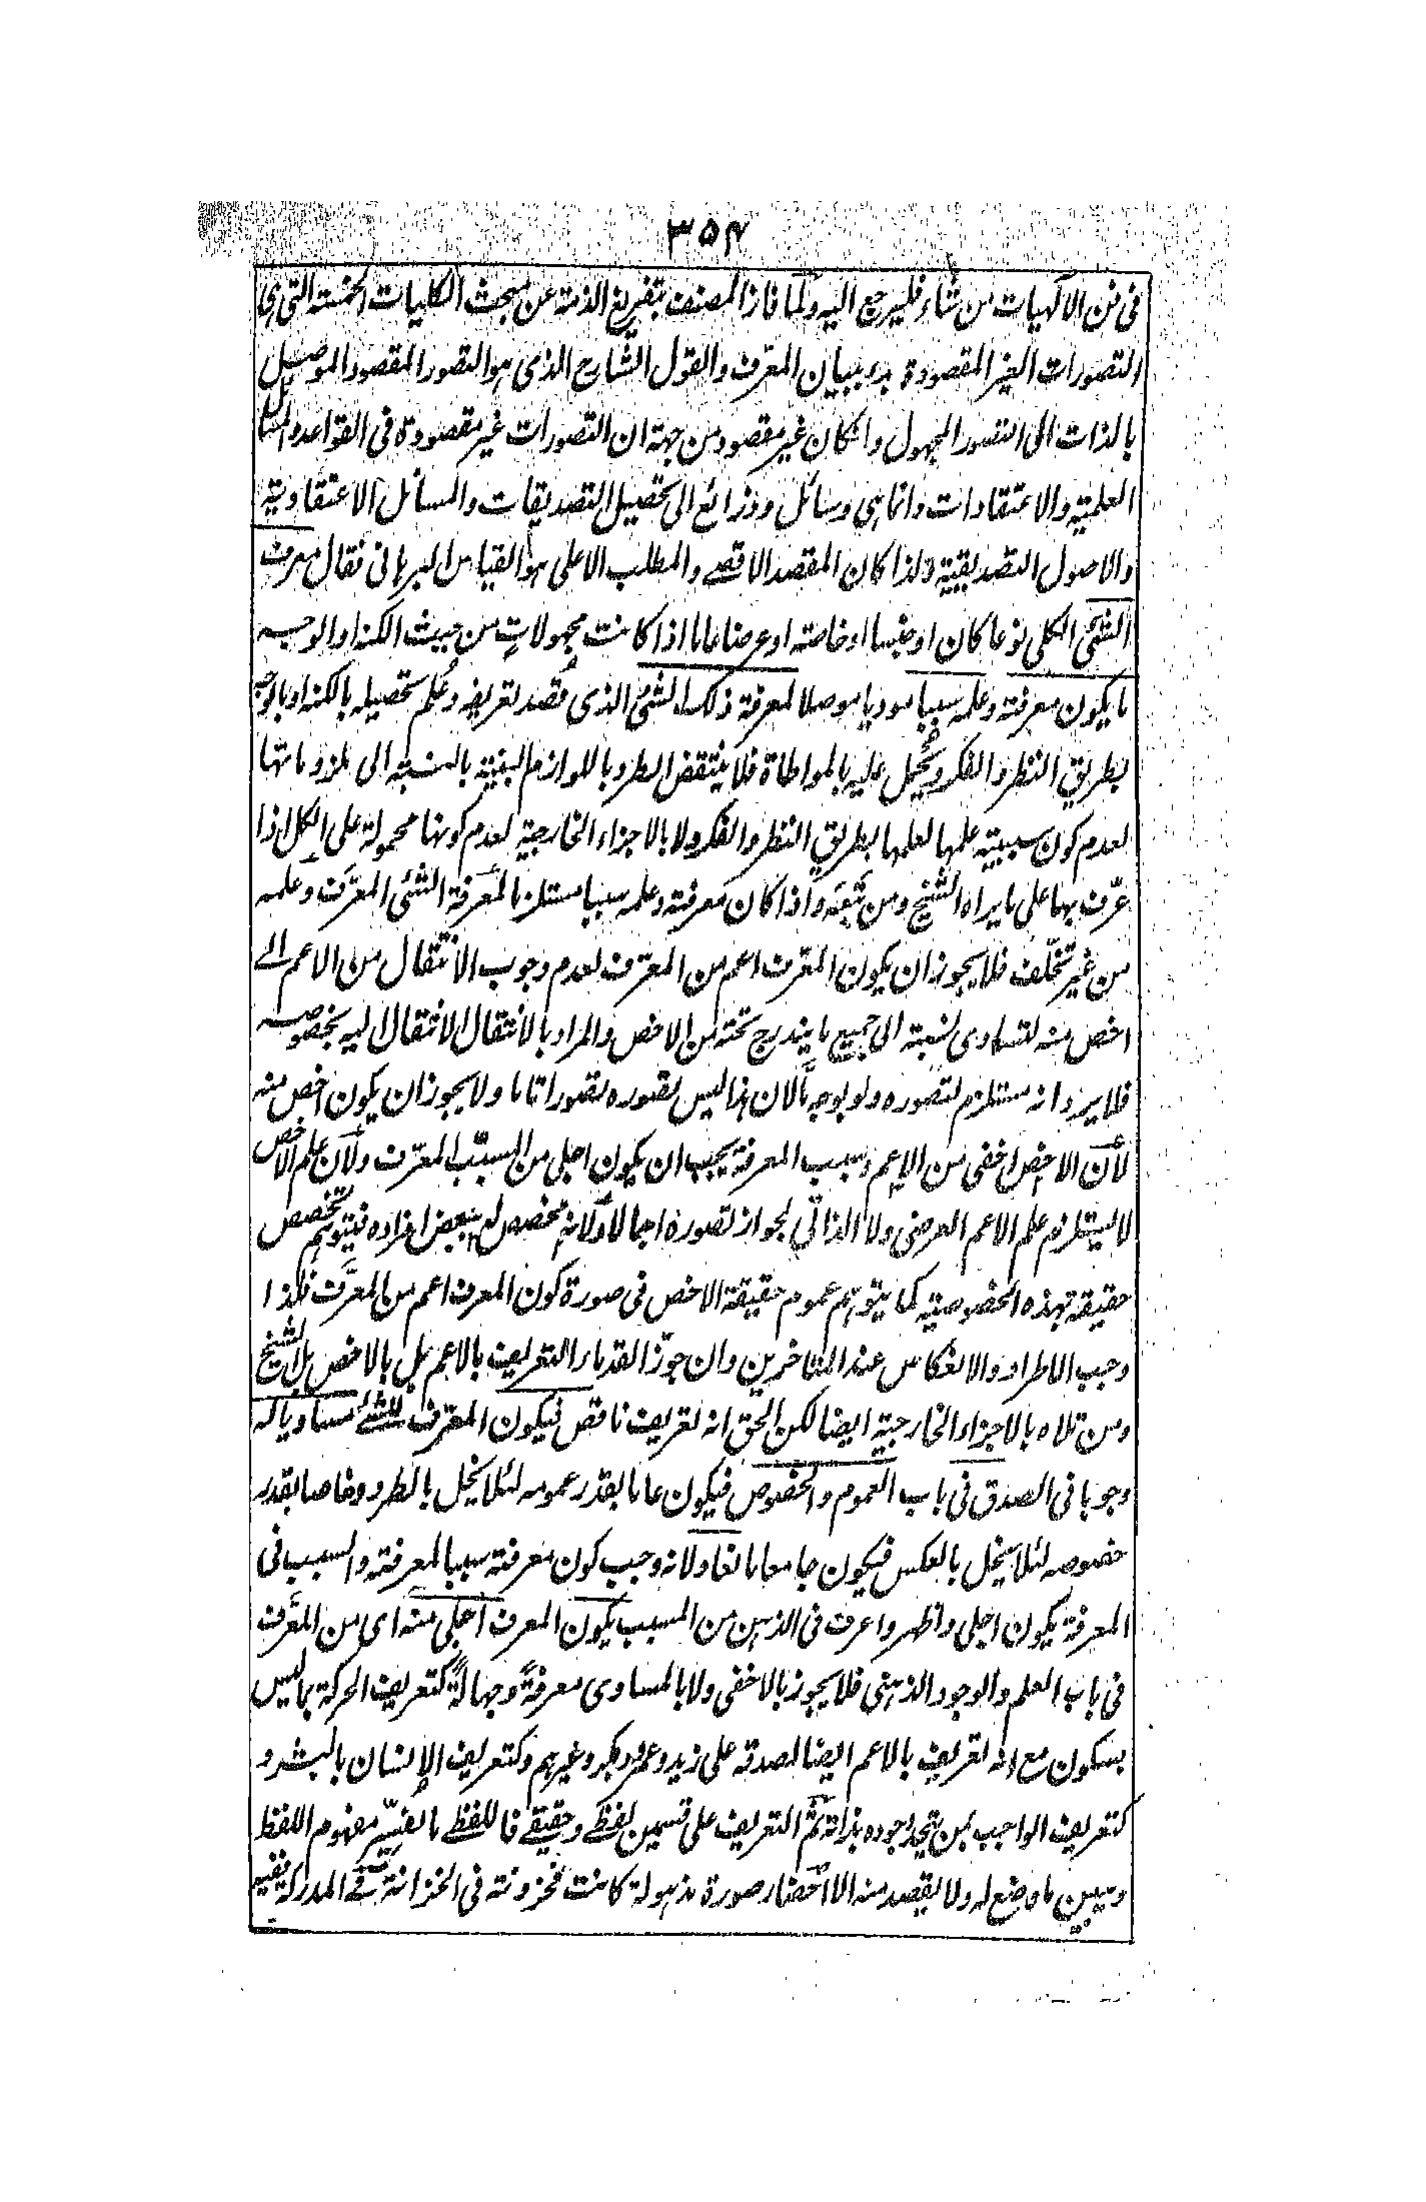 ٣٥٤
فى فن الالهيات من شاء فليرجع اليه ولما فاز المصنف بتفريغ الذمة عن مبحث الكليات الخمسة التى هى
التصورات الغير المقصودة بدء ببيان المعرف والقول الشارح الذى هو التصور المقصود الموصل
بالذات الى التصور المجهول وان كان غير مقصود من جهة ان التصورات غير مقصودة فى القواعد والمسائل
العلمية والاعتقادات وانما هى وسائل وذرائع الى تحصيل التصديقات والمسائل الاعتقادية
والاصول التصديقية ولذا كان المقصد الاقصے والمطلب الاعلى هو القياس البرهانى فقال معرف
الشئ الكلى نوعا كان او جنسا او خاصة او عرضا عاما اذا كانت مجهولات من حيث الكنه او الوجه
ما يكون معرفته وعلمه سببا موديا موصلا لمعرفة ذلك الشئ الذى قصد تعريفه وعلم تحصيله بالكنه او بالوجه
بطريق النظر والفكر ويحمل عليه بالمواطاة فلا ينتقض الطرد باللوازم البينة بالنسبة الى ملزوماتها
لعدم كون سببية علمها لعلمها بطريق النظر والفكر ولا بالاجزاء الخارجية لعدم كونها محمولة على الكل اذا
عرّف بها على ما يراه الشيخ ومن تبعه واذا كان معرفته وعلمه سببا مستلزما لمعرفة الشئ المعرَّف وعلمه
من غير تخلّف فلا يجوز ان يكون المعرّف اعم من المعرَّف لعدم وجوب الانتقال من الاعم الے
اخص منه لتساوى نسبته الى جميع ما يندرج تحته من الاخص والمراد بالانتقال الانتقال اليه بخصوصه
فلا يرد انه مستلزم لتصوره ولو بوجه ما لان هذا ليس تصوره تصورا تاما ولا يجوز ان يكون اخص منه
لأن الاخص اخفى من الاعم وسبب المعرفة يجب ان يكون اجلى من المسبَّب المعرَّف ولأن علم الاخص
لا يستلزم علم الاعم العرضى ولا الذاتى لجواز تصوره اجمالا ولانه مخصص له ببعض افراده فيتوهم تخصص
حقيقته بهذه الخصوصية كما يتوهم عموم حقيقة الاخص فى صورة كون المعرف اعم من المعرَّف فلذا
وجب الاطراد والانعكاس عند المتاخرين وان جوّز القدماء التعريف بالاعم بل بالاخص بل الشيخ
ومن تلاه بالاجزاء الخارجية ايضا لكن الحق انه تعريف ناقص فيكون المعرّف للشئ مساويا له
وجوبا فى الصدق فى باب العموم والخصوص فيكون عاما بقدر عمومه لئلا يخل بالطرد وخاصا بقدر
خصوصه لئلا يخل بالعكس فيكون جامعا مانعا ولانه وجب كون معرفته سببا لمعرفته والسبب فى
المعرفة يكون اجلى واظهر واعرف فى الذهن من المسبب يكون المعرف اجلى منه اى من المعرَّف
فى باب العلم والوجود الذهنى فلا يجوز بالاخفى ولا بالمساوى معرفةً وجهالةً كتعريف الحركة بما ليس
بسكون مع انه تعريف بالاعم ايضا لصدقه على زيد وعمرو وبكر وغيرهم وكتعريف الانسان بالبشر و
كتعريف الواجب بمن يتحد وجوده بذاته ثم التعريف على قسمين لفظے وحقيقے فاللفظے ما يفسّر مفهوم اللفظ
ويبين ما وضع له ولا يقصد منه الا احضار صورة مذهولة كانت مخزونة فى الخزانة فے المدركة